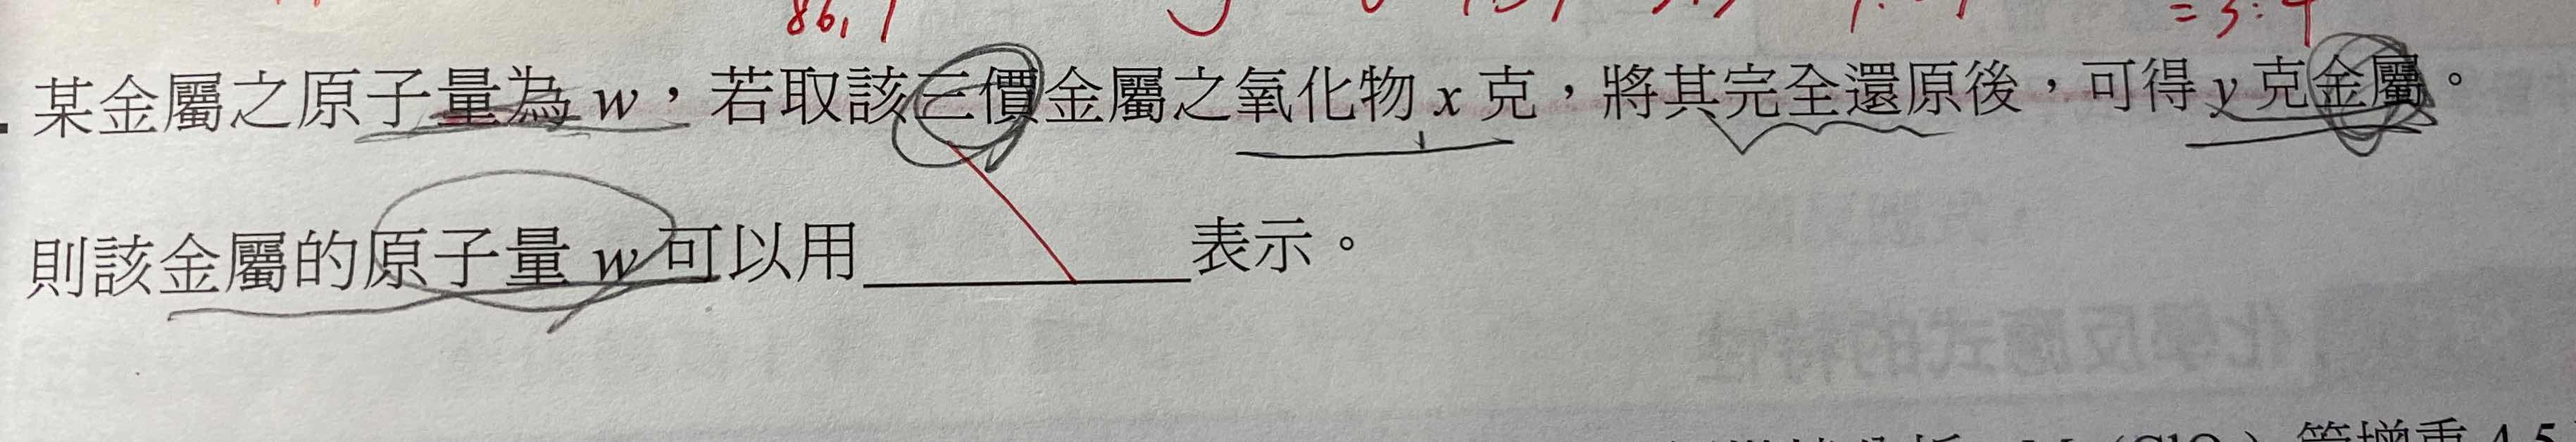 86,1
=3:4
某金屬之原子量為 w，若取該三價金屬之氧化物 x 克，將其完全還原後，可得 y 克金屬。
則該金屬的原子量 w 可以用__________表示。